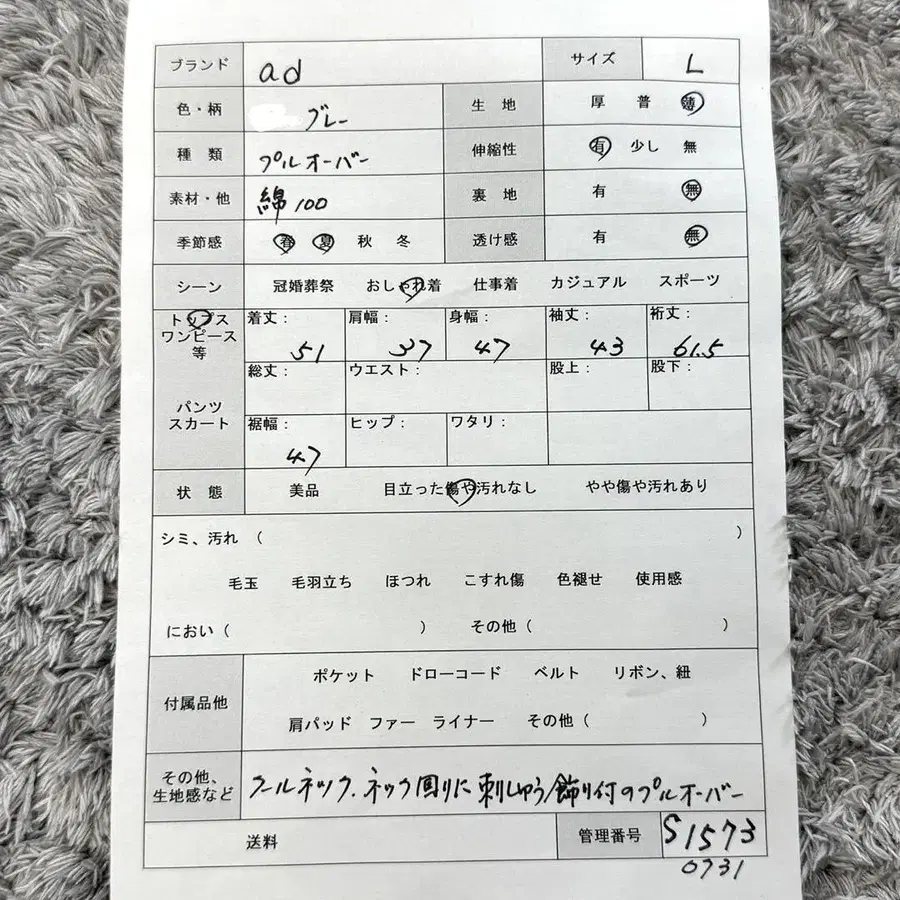 ブランド ad サイズ L
色・柄 ブレー 生地 厚 普 薄
種類 プルオーバー 伸縮性 有 少し 無
素材・他 綿100 裏地 有 無
季節感 春 夏 秋 冬 透け感 有 無
シーン 冠婚葬祭 おしゃれ着 仕事着 カジュアル スポーツ
トップス
ワンピース
等
着丈: 51 肩幅: 37 身幅: 47 袖丈: 43 裄丈: 61.5
総丈: ウエスト: 股上: 股下:
パンツ
スカート
裾幅: 47 ヒップ: ワタリ:
状態 美品 目立った傷や汚れなし やや傷や汚れあり
シミ、汚れ ( )
毛玉 毛羽立ち ほつれ こすれ傷 色褪せ 使用感
におい ( ) その他 ( )
付属品他 ポケット ドローコード ベルト リボン、紐
肩パッド ファー ライナー その他 ( )
その他、
生地感など
クールネック、ネック回りに刺しゅう飾り付のプルオーバー
送料 管理番号 S1573
0731